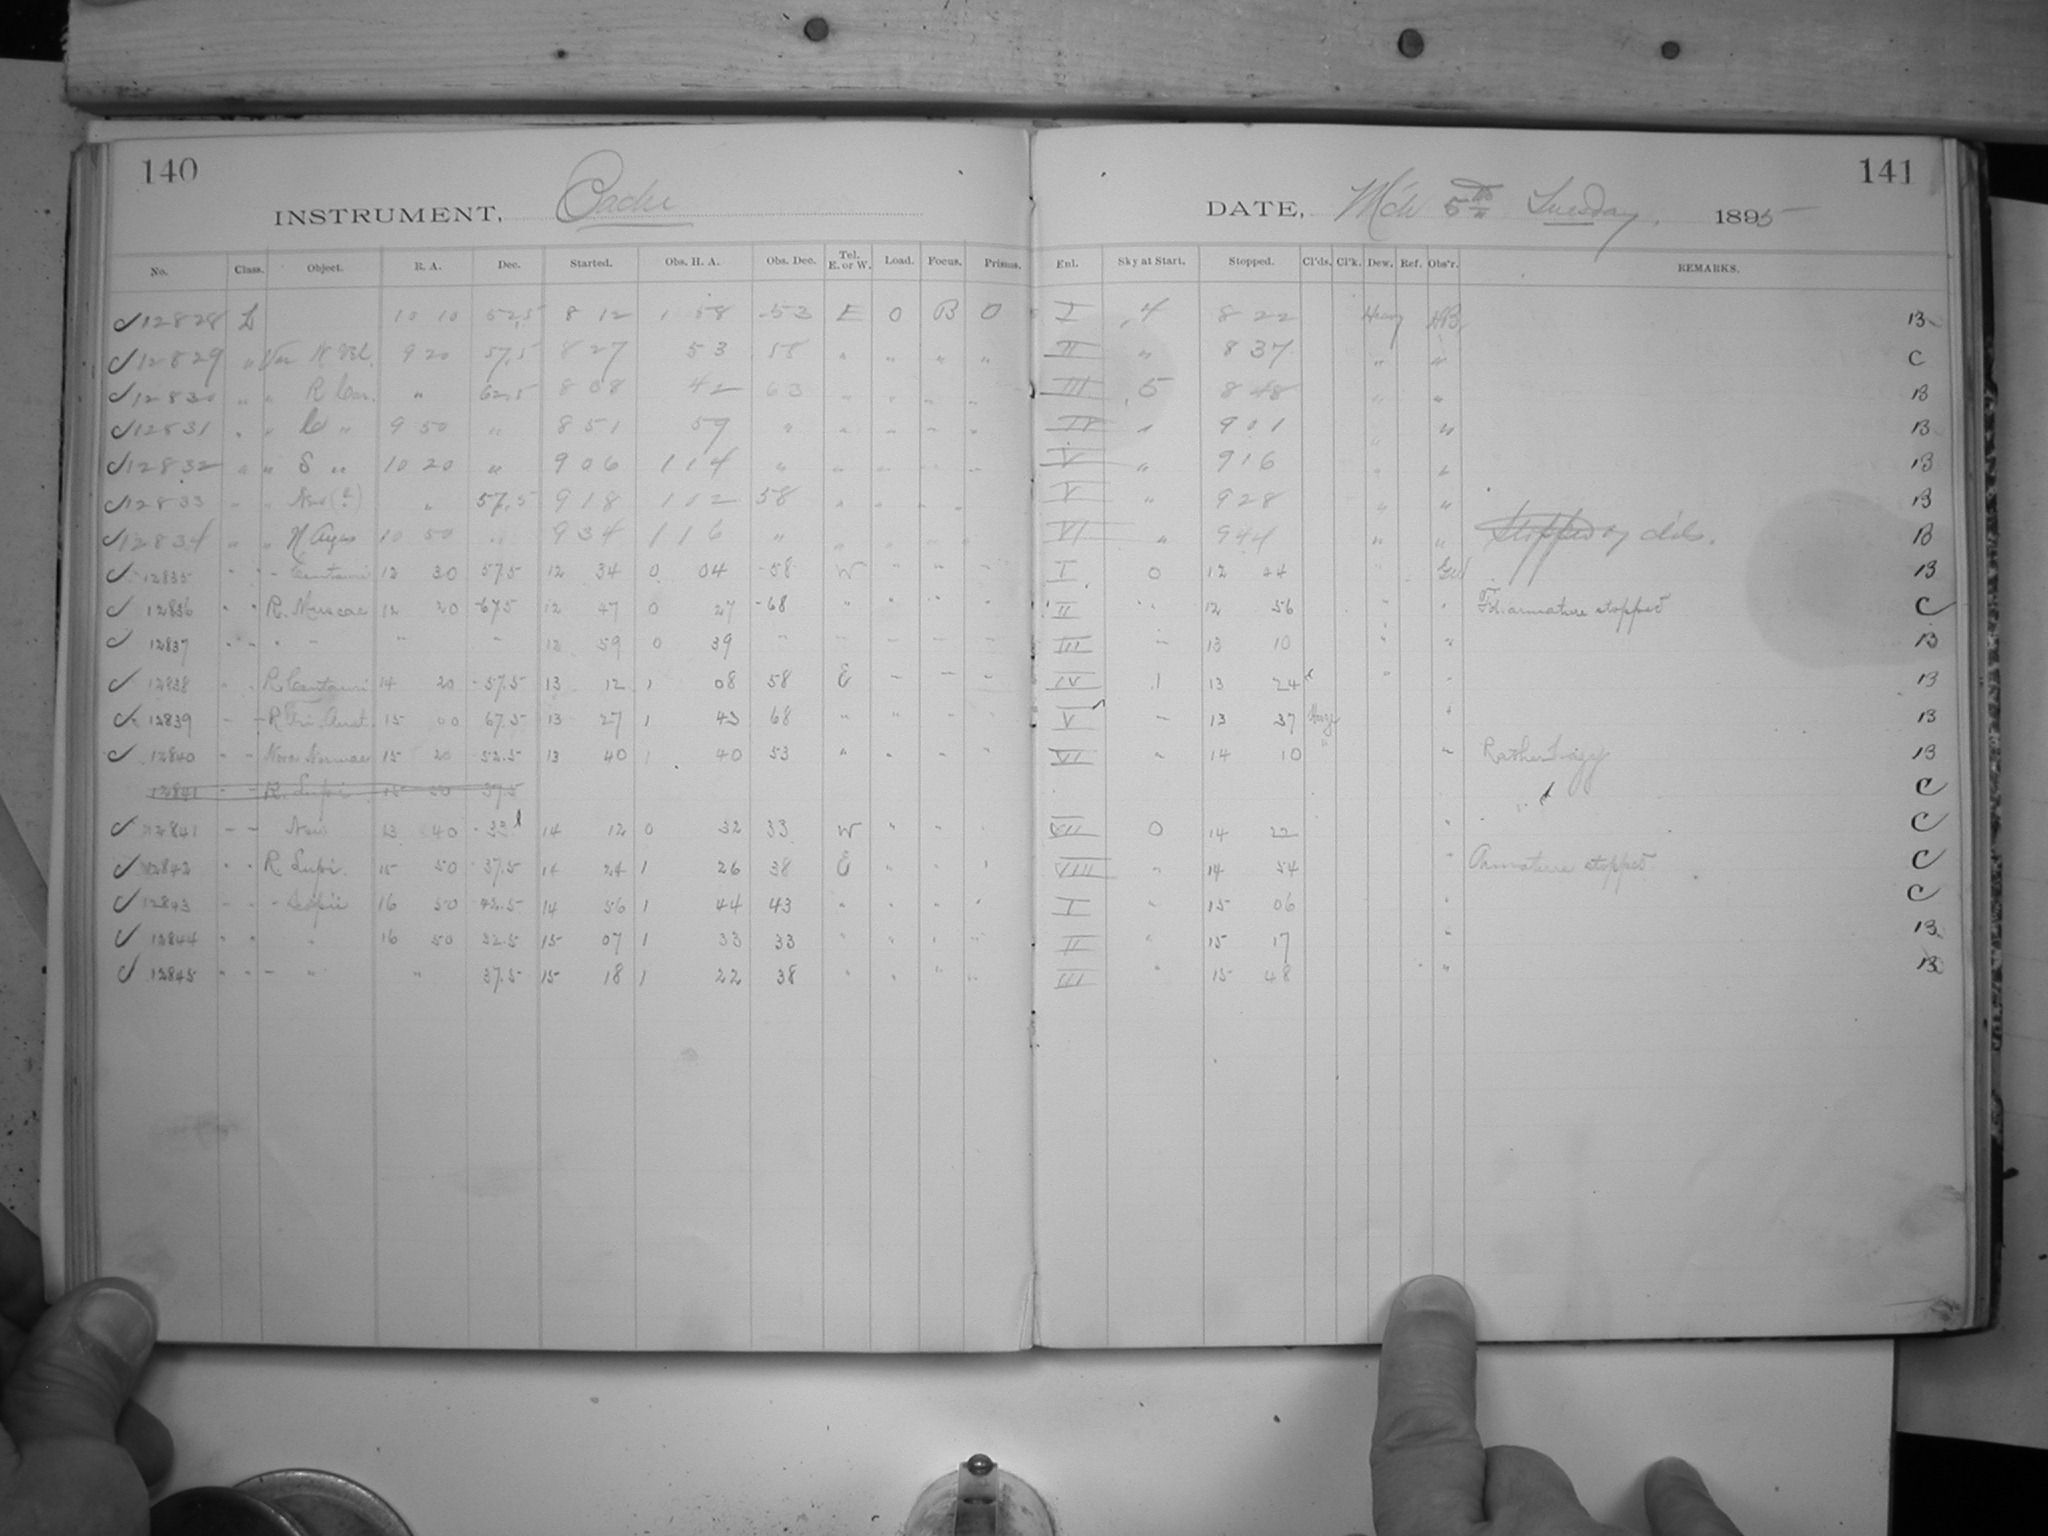 140
INSTRUMENT, Bache
No. Class. Object. R. A. Dec. Started. Obs. H. A. Obs. Dec. Tel. E. or W. Load. Focus. Prisms.
12828 L 10 10 52.5 8 12 1 58 -53 E O B O
12829 " Var N Vel. 9 20 57.5 8 27 53 58 " " " "
12830 " " R Car. " 62.5 8 38 42 63 " " " "
12831 " " " 9 50 " 8 51 59 " " " " "
12832 " " S " 10 20 " 9 06 1 14 " " " " "
12833 " " " 57.5 9 18 1 02 58 " " " "
12834 " " 10 50 " 9 34 1 16 " " " " "
12835 " " - Centauri 12 30 57.5 12 34 0 04 -58 W " " "
12836 " " R. Muscae 12 20 -67.5 12 47 0 27 -68 " " " "
12837 " - " - " - 12 59 0 39 - - - - -
12838 " " R. Centauri 14 20 -57.5 13 12 1 08 58 E - - -
12839 - - R Tri. Aust. 15 00 67.5 13 27 1 43 68 " " - -
12840 - - Nova Normae 15 20 52.5 13 40 1 40 53 " " - "
12841 - - R. Lupi 15 50 37.5
12841 - - New 13 40 -33 14 12 0 32 33 W " " "
12842 " " R. Lupi. 15 50 -37.5 14 24 1 26 38 E " " '
12843 - - - Scorpii 16 50 42.5 14 56 1 44 43 " " " '
12844 " " " 16 50 32.5 15 07 1 33 33 " " ' "
12845 " " - " " 37.5 15 18 1 22 38 " " " "
141
DATE, Mch 5th Tuesday, 1895
Enl. Sky at Start. Stopped. Cl'ds. Cl'k. Dew. Ref. Obs'r. REMARKS.
I .4 8 22 Heavy B
II " 8 37 " " C
III .5 8 48 " " B
IV " 9 01 " " B
V " 9 16 " " B
V " 9 28 " " B
VI " 9 44 " " Stopped by clds. B
I 0 12 44 " B
II " 12 56 " " armature stopped C
III - 13 10 " " B
IV 1 13 24 " " B
V - 13 37 Hazy " B
VI " 14 10 " " Rather foggy B
" C
VII 0 14 22 " C
VIII " 14 54 " Armature stopped C
I " 15 06 " C
II " 15 17 " B
III " 15 48 " B